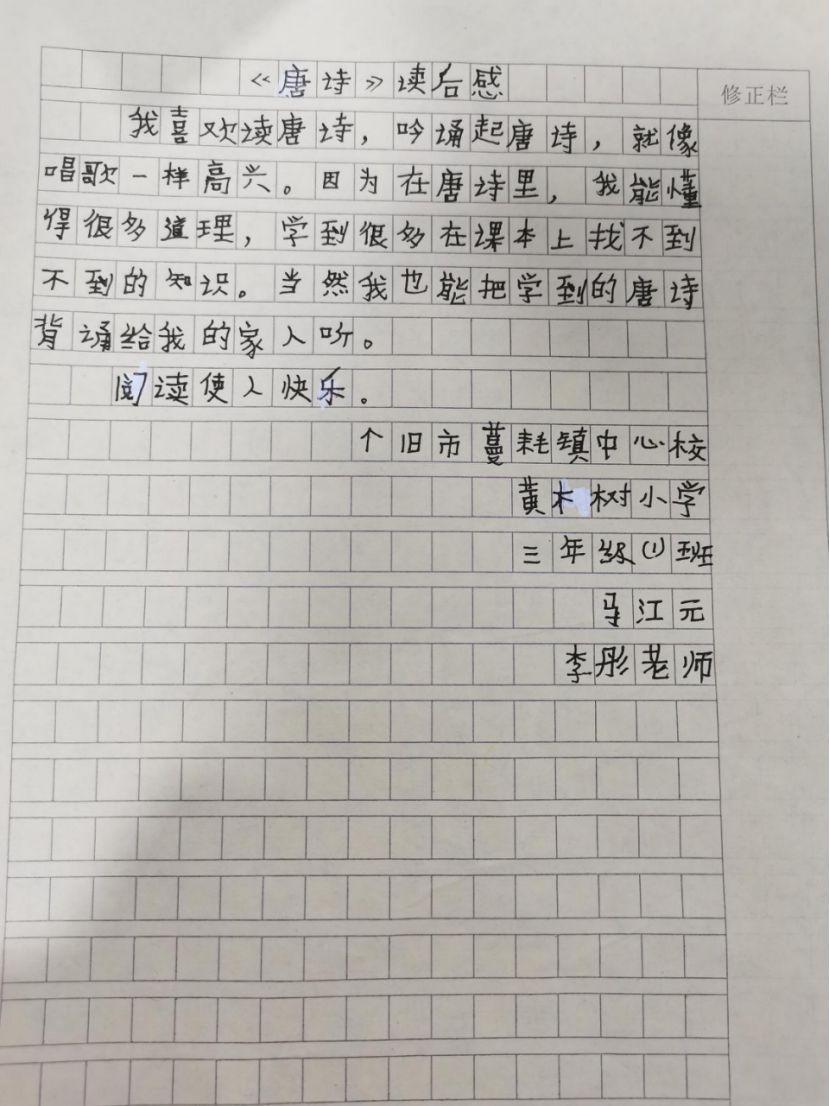 《唐诗》读后感
修正栏
我喜欢读唐诗，吟诵起唐诗，就像
唱歌一样高兴。因为在唐诗里，我能懂
得很多道理，学到很多在课本上找不到
不到的知识。当然我也能把学到的唐诗
背诵给我的家人听。
阅读使人快乐。
个旧市蔓耗镇中心校
黄木树小学
三年级(1)班
马江元
李彤老师